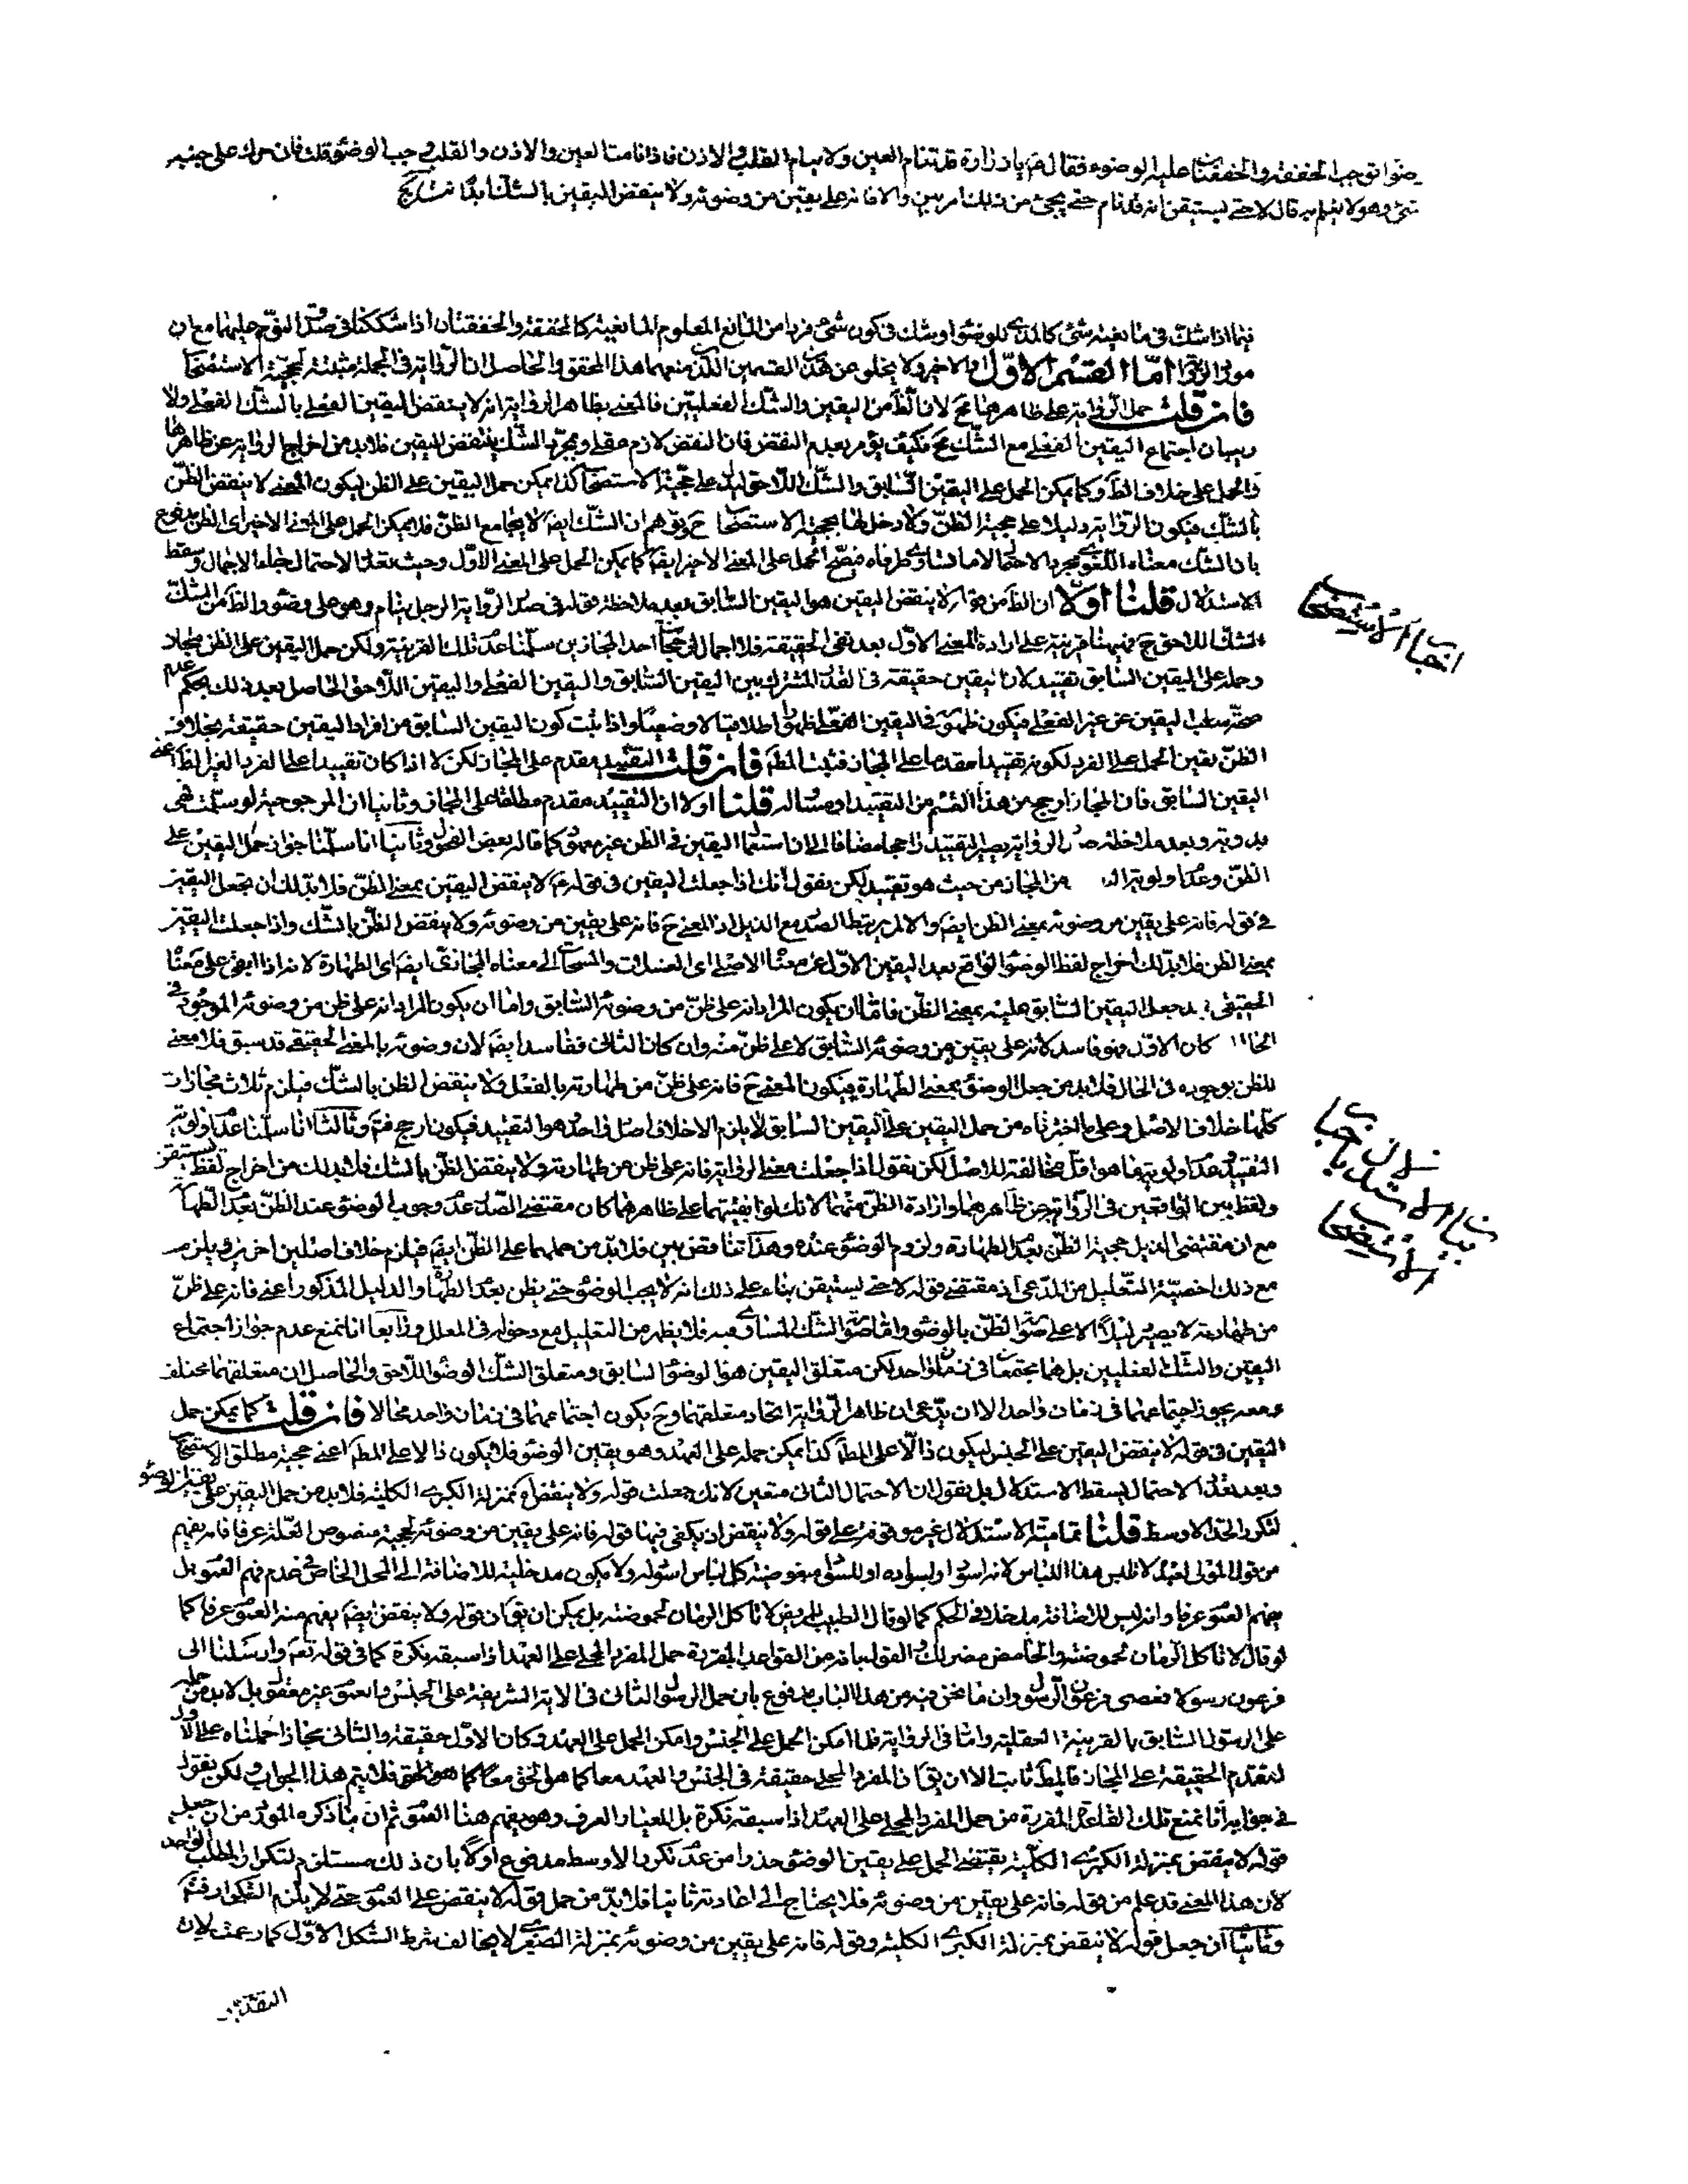 وضوء اتوجب الخفقة والخفقتان عليه الوضوء فقال ع يا زرارة قد تنام العين ولا ينام القلب والاذن فاذا نامت العين والاذن والقلب وجب الوضوء قلت فان حرك على جنبه
شئ وهو لا يعلم به قال لا حتى يستيقن انه قد نام حتى يجئ من ذلك امر بين والا فانه على يقين من وضوئه ولا ينقض اليقين بالشك ابدا
فيما اذا شك في مانعية شئ كالمذى للوضوء او شك في كون شئ فردا من المانع المعلوم المانعية كالخفقة والخفقتان اذا شككنا في صدق النوم عليهما مع ان
مورد الرواية اما القسم الاول او الاخير ولا يخلو عن هذين القسمين اللذين منعهما هذا المحقق والحاصل ان الرواية في الجملة مثبتة لحجية الاستصحاب
فان قلت حمل الرواية على ظاهرهما مح لان الظ من اليقين والشك الفعليين فالمعنى بظاهر الرواية انه لا ينقض اليقين الفعلي بالشك الفعلي ولا
ريب ان اجتماع اليقين الفعلي مع الشك مح فكيف يؤمر بعدم النقض فان النقض لازم عقلي وبمجرد الشك ينتقض اليقين فلا بد من اخراج الرواية عن ظاهرها
والحمل على خلاف الظ وكما يمكن الحمل على اليقين السابق والشك اللاحق ليدل على حجية الاستصحاب كذا يمكن حمل اليقين على الظن ليكون المعنى لا ينقض الظن
بالشك فيكون الرواية دليلا على حجية الظن ولا دخل لها بحجية الاستصحاب ح وتوهم ان الشك ايض لا يجامع الظن فلا يمكن الحمل على المعنى الاخير اى الظن مدفوع
بان الشك معناه اللغوى مجرد الاحتمال لا ما تساوى طرفاه فيصح الحمل على المعنى الاخير ايض كما يمكن الحمل على المعنى الاول وحيث تعدد الاحتمال جاء الاجمال وسقط
الاستدلال قلنا اولا ان الظ من قوله لا ينقض اليقين هو اليقين السابق بعد ملاحظة قوله في صدر الرواية الرجل ينام وهو على وضوء والظ من الشك
الشك اللاحق ح فيهما قرينة على ارادة المعنى الاول بعد نفى الحقيقة فلا اجمال احد المجازين سلمنا عدم تلك القرينة ولكن حمل اليقين على الظن مجاز
وحمله على اليقين السابق تقييد لان اليقين حقيقة في القدر المشترك بين اليقين السابق واليقين الفعلي واليقين اللاحق الحاصل بعد ذلك بحكم عدم
صحة سلب اليقين عن غير الفعلي فيكون ظهوره في اليقين الفعلي ظهورا اطلاقيا لا وضعيا واذا ثبت كون اليقين السابق من افراد اليقين حقيقة بخلاف
الظن تعين الحمل على الفرد لكونه تقييدا مقدما على المجاز فثبت المط فان قلت التقييد مقدم على المجاز لكن لا اذا كان تقييدا على الفرد الغير الظ اعنى
اليقين السابق فان المجاز ارجح من هذا القسم من التقييد او مساو له قلنا اولا ان التقييد مقدم مطلقا على المجاز وثانيا ان المرجوحية لو سلمت فهى
بدوية وبعد ملاحظة صدر الرواية يصير التقييد راجحا مضافا الى ان استعمال اليقين في الظن غير معهود كما قاله بعض الفحول وثانيا انا سلمنا جواز حمل اليقين على
الظن وعدم اولوية من المجاز من حيث هو تقييد لكن نقول انك اذا جعلت اليقين في قوله ع لا ينقض اليقين بمعنى الظن فلا بد لك ان تجعل اليقين
في قوله فانه على يقين من وضوئه بمعنى الظن ايض والا لم يرتبط الصدر مع الذيل اذ المعنى ح فانه على يقين من وضوئه ولا ينقض الظن بالشك واذا جعلت اليقين
بمعنى الظن فلا بد لك اخراج لفظ الوضوء الواقع بعد اليقين الاول عن معناه الاصلى اى الغسلات والمسحات الى معناه المجازى ايض اى الطهارة لانه اذا ابقى على معناه
الحقيقى بعد جعل اليقين السابق عليه بمعنى الظن فاما ان يكون المراد انه على ظن من وضوئه السابق واما ان يكون المراد انه على ظن من وضوئه الموجود في
الحال كان الاول فهو فاسد لانه على يقين من وضوئه السابق لا على ظن منه وان كان الثانى ففاسد ايض لان وضوئه بالمعنى الحقيقى قد سبق فلا معنى
للظن بوجوده في الحال فلا بد من جعل الوضوء بمعنى الطهارة فيكون المعنى ح فانه على ظن من طهارته بالفعل ولا ينقض الظن بالشك فيلزم ثلاث مجازات
كلها خلاف الاصل وعلى ما اخترناه من حمل اليقين على اليقين السابق لا يلزم الا خلاف اصل واحد هو التقييد فيكون ارجح فتم وثالثا انا سلمنا عدم اولوية
التقييد وعدم اولوية ما هو اقل مخالفة للاصل لكن نقول اذا جعلت معنى الرواية فانه على ظن من طهارته ولا ينقض الظن بالشك فلا بد لك من اخراج لفظ يستيقن
ولفظ بين الواقعين في الرواية عن ظاهرهما وارادة الظن منهما لانك لو ابقيتهما على ظاهرهما كان مقتضى الصدر عدم وجوب الوضوء عند الظن بعدم الطهارة
مع ان مقتضى الذيل حجية الظن بعدم الطهارة ولزوم الوضوء عنده وهذا تناقض بين فلا بد من حملهما على الظن ايض فيلزم خلاف اصلين اخرين ويلزم
مع ذلك اخصية التعليل من المدعى اذ مقتضى قوله لا حتى يستيقن بناء على ذلك انه لا يجب الوضوء حتى يظن بعدم الطهارة والدليل المذكور اعنى فانه على ظن
من طهارته لا يصير دليلا الا على صورة الظن بالوضوء واما صورة الشك المتساوى فيه فلا يظهر من التعليل مع دخوله في المعلل ورابعا انا نمنع عدم جواز اجتماع
اليقين والشك الفعليين بل هما يجتمعان في زمان واحد لكن متعلق اليقين هو الوضوء السابق ومتعلق الشك الوضوء اللاحق والحاصل ان متعلقهما مختلف
ومعه يجوز اجتماعهما في زمان واحد الا ان يدعى ان ظاهر الرواية اتحاد متعلقهما وح يكون اجتماعهما في زمان واحد محالا فان قلت كما يمكن حمل
اليقين في قوله لا ينقض اليقين على الجنس ليكون دالا على المط كذا يمكن حمله على العهد وهو يقين الوضوء فلا يكون دالا على المط اعنى حجية مطلق الاستصحاب
وبعد تعدد الاحتمال يسقط الاستدلال بل نقول ان الاحتمال الثانى متعين لانك جعلت قوله ولا ينقض اه بمنزلة الكبرى الكلية فلا بد من حمل اليقين على يقين الوضوء
لتكرر الحد الاوسط قلنا تمامية الاستدلال غير موقوفة على قوله ولا ينقض اذ يكفى فيها قوله فانه على يقين من وضوئه لحجية منصوص العلة عرفا فانه يفهم
من قول المولى لعبده لا تلبس هذا اللباس لانه اسود او لسواده او للسواد مبغوضية كل لباس اسود له ولا يكون مدخلية للاضافة الى المحل الخاص في عدم فهم العموم بل
يفهم العموم عرفا وانه ليس للاضافة مدخل في الحكم كما لو قال الطبيب للمريض لا تاكل الرمان لحموضته بل يمكن ان يق ان قوله ولا ينقض ايض يفهم منه العموم عرفا كما
لو قال لا تاكل الرمان لحموضته والحامض مضر لك والقول بانه من القواعد المقررة حمل المفرد المحلى على العهد اذا سبقه نكرة كما في قوله تعم وارسلنا الى
فرعون رسولا فعصى فرعون الرسول وان ما نحن فيه من هذا الباب مدفوع بان حمل الرسول الثانى في الاية الشريفة على الجنس والعموم غير معقول بل لا بد من حمله
على الرسول السابق بالقرينة العقلية واما في الرواية فلما امكن الحمل على الجنس وامكن الحمل على العهد وكان الاول حقيقة والثانى مجازا حملناه على الاول
لتقدم الحقيقة على المجاز فالمط ثابت الا ان يق ان المفرد المحلى حقيقة في الجنس والعهد معا كما هو الحق فلا يتم هذا الجواب ولكن نقول
في جوابه انا نمنع تلك القاعدة المقررة من حمل المفرد المحلى على العهد اذا سبقه نكرة بل المعيار العرف وهو يفهم هنا العموم ثم ان ما ذكره المورد من ان جعل
قوله لا ينقض بمنزلة الكبرى الكلية يقتضى الحمل على يقين الوضوء حذرا من عدم تكرر الاوسط مدفوع اولا بان ذلك مستلزم لتكرار المطلب الواحد
لان هذا المعنى قد علم من قوله فانه على يقين من وضوئه فلا يحتاج الى اعادته ثانيا فلا بد من حمل قوله لا ينقض على العموم حتى لا يلزم التكرار فتم
وثانيا ان جعل قوله لا ينقض بمنزلة الكبرى الكلية وقوله فانه على يقين من وضوئه بمنزلة الصغرى لا يخالف شرط الشكل الاول كما زعمت لان